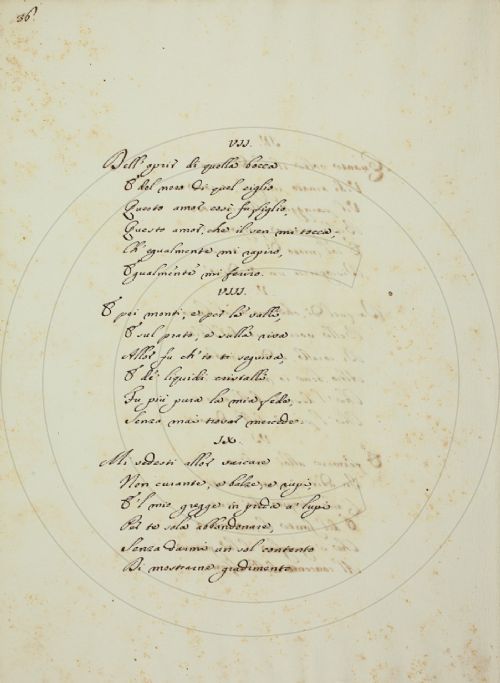 36
VII.
Dell' aprir di quella bocca
E del nero di quel ciglio
Questo amor così fu figlio,
Questo amor, che il sen mi tocca,
Ch' egualmente mi rapiro,
Egualmente mi feriro.
VIII.
E pei monti, e per la valle,
E sul prato, e sulla riva
Allor fu ch' io ti seguiva,
E de' liquidi cristalli
Fu più pura la mia fede,
Senza mai trovar mercede.
IX.
Mi vedesti allor varcare
Non curante, e balze, e rupi
E 'l mio gregge in preda a' lupi
Per te sola abbandonare,
Senza darmi un sol contento
Di mostrarne gradimento